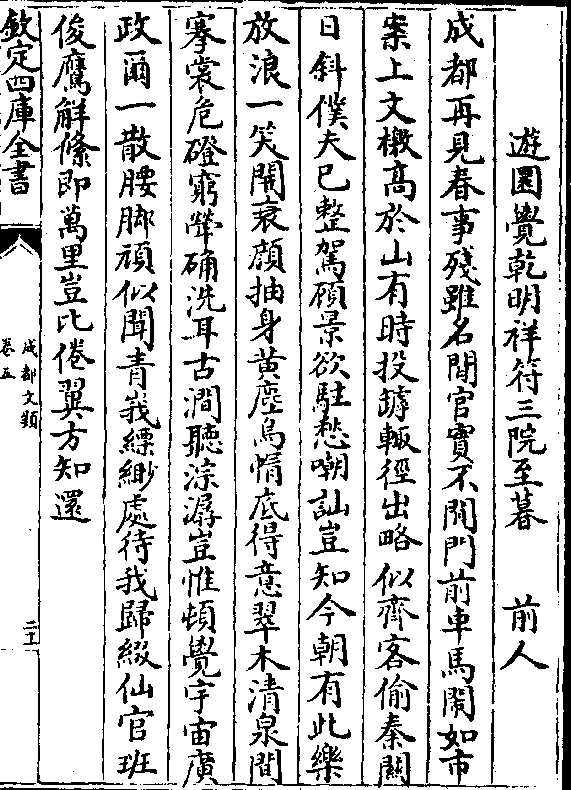 遊圓覺乾明祥符三院至暮　前人
成都再見春事殘雖名閒官實不閒門前車馬鬧如市
案上文檄高於山有時投罅輒徑出略似齊客偷秦關
日斜僕夫已整駕顧景欲駐愁嘲訕豈知今朝有此樂
放浪一笑開衰顔抽身黄塵烏帽底得意翠木清泉間
搴裳危磴窮犖确洗耳古澗聽淙潺豈惟頓覺宇宙廣
政爾一散腰脚頑似聞青峩縹緲處待我歸綴仙官班
俊鷹解絛即萬里豈比倦翼方知還
欽定四庫全書
成都文類
卷五